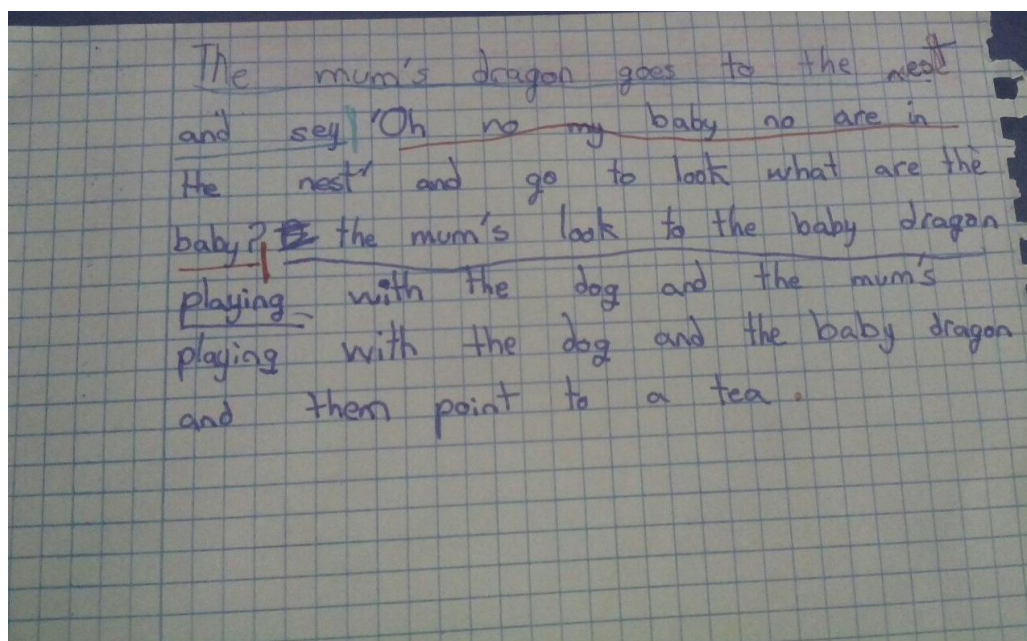 The mum's dragon goes to the nest
and sey "Oh no my baby no are in
the nest" and go to look what are the
baby? the mum's look to the baby dragon
playing with the dog and the mum's
playing with the dog and the baby dragon
and them point to a tea.